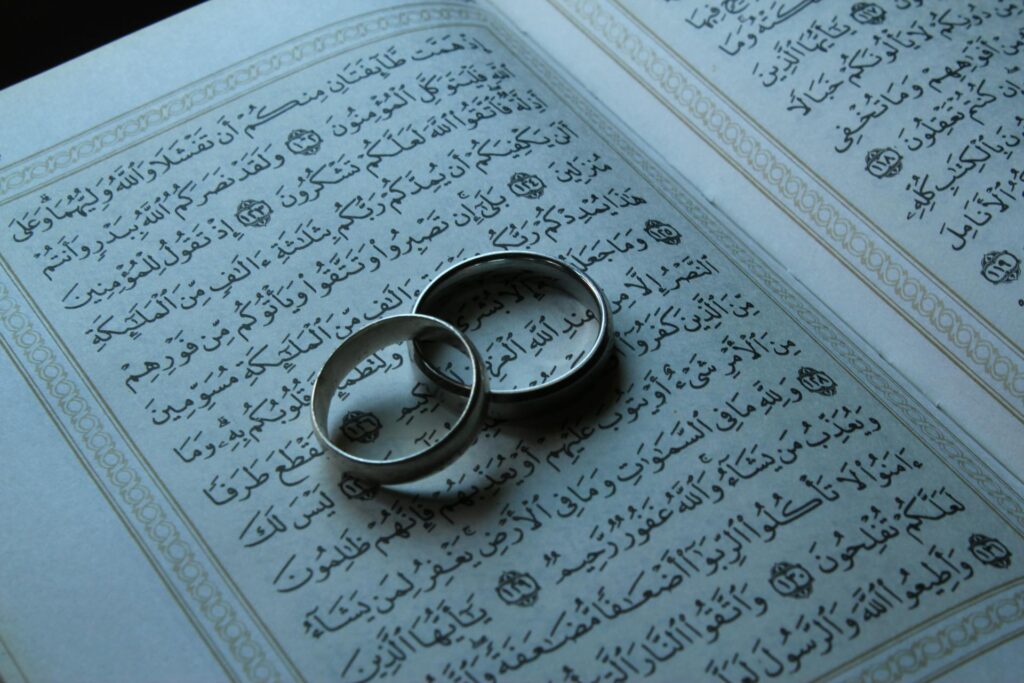 فِيهَا
وَمَا
١١٧ يَٰٓأَيُّهَا ٱلَّذِينَ
دُونِكُمْ لَا يَأْلُونَكُمْ خَبَالًا
مِنْ أَفْوَٰهِهِمْ وَمَا تُخْفِى
إِن كُنتُمْ تَعْقِلُونَ ١١٨
بِٱلْكِتَٰبِ كُلِّهِۦ
ٱلْأَنَامِلَ
١١٩
إِذْ هَمَّت طَّآئِفَتَانِ مِنكُمْ أَن تَفْشَلَا وَٱللَّهُ وَلِيُّهُمَا ۗ وَعَلَى
ٱللَّهِ فَلْيَتَوَكَّلِ ٱلْمُؤْمِنُونَ ١٢٢ وَلَقَدْ نَصَرَكُمُ ٱللَّهُ بِبَدْرٍ وَأَنتُمْ
أَذِلَّةٌ ۖ فَٱتَّقُوا۟ ٱللَّهَ لَعَلَّكُمْ تَشْكُرُونَ ١٢٣ إِذْ تَقُولُ لِلْمُؤْمِنِينَ
أَلَن يَكْفِيَكُمْ أَن يُمِدَّكُمْ رَبُّكُم بِثَلَٰثَةِ ءَالَٰفٍ مِّنَ ٱلْمَلَٰٓئِكَةِ
مُنزَلِينَ ١٢٤ بَلَىٰٓ ۚ إِن تَصْبِرُوا۟ وَتَتَّقُوا۟ وَيَأْتُوكُم مِّن فَوْرِهِمْ
هَٰذَا يُمْدِدْكُمْ رَبُّكُم ءَالَٰفٍ مِّنَ ٱلْمَلَٰٓئِكَةِ مُسَوِّمِينَ
١٢٥ وَمَا جَعَلَهُ إِلَّا بُشْرَىٰ وَلِتَطْمَئِنَّ قُلُوبُكُم بِهِۦ ۗ وَمَا
ٱلنَّصْرُ إِلَّا مِنْ عِندِ ٱللَّهِ ٱلْعَزِيزِ ٱلْحَكِيمِ ١٢٦ لِيَقْطَعَ طَرَفًا
مِّنَ ٱلَّذِينَ كَفَرُوٓا۟ لَيْسَ لَكَ
مِنَ ٱلْأَمْرِ شَىْءٌ أَوْ يَتُوبَ عَلَيْهِمْ أَوْ يُعَذِّبَهُمْ فَإِنَّهُمْ ظَٰلِمُونَ
١٢٨ وَلِلَّهِ مَا فِى ٱلسَّمَٰوَٰتِ وَمَا فِى ٱلْأَرْضِ ۚ يَغْفِرُ لِمَن يَشَآءُ
وَيُعَذِّبُ مَن يَشَآءُ ۚ وَٱللَّهُ غَفُورٌ رَّحِيمٌ ١٢٩ يَٰٓأَيُّهَا ٱلَّذِينَ
ءَامَنُوا۟ لَا تَأْكُلُوا۟ ٱلرِّبَوٰٓا۟ أَضْعَٰفًا مُّضَٰعَفَةً ۖ
لَعَلَّكُمْ تُفْلِحُونَ ١٣٠ وَٱتَّقُوا۟ ٱلنَّارَ
١٣١ وَأَطِيعُوا۟ ٱللَّهَ وَٱلرَّسُولَ